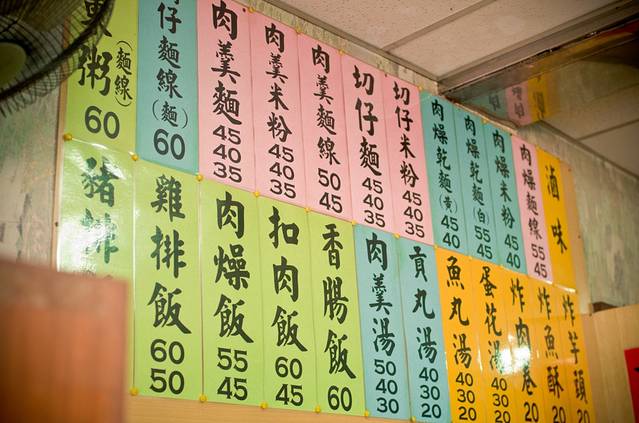 粥(麵線) 60
仔麵線(麵) 60
肉羹麵 45 40 35
肉羹米粉 45 40 35
肉羹麵線 50 45
切仔麵 45 40 35
切仔米粉 45 40 35
肉燥乾麵(黃) 45 40
肉燥乾麵(白) 55 45
肉燥米粉 45 40
肉燥麵線 55 45
滷味
豬排
雞排飯 60 50
肉燥飯 55 45
扣肉飯 60 50
香腸飯 60
肉羹湯 50 40 30
貢丸湯 40 30 20
魚丸湯 40 30 20
蛋花湯 40 30 20
炸肉卷 20
炸魚酥 20
炸芋頭 20